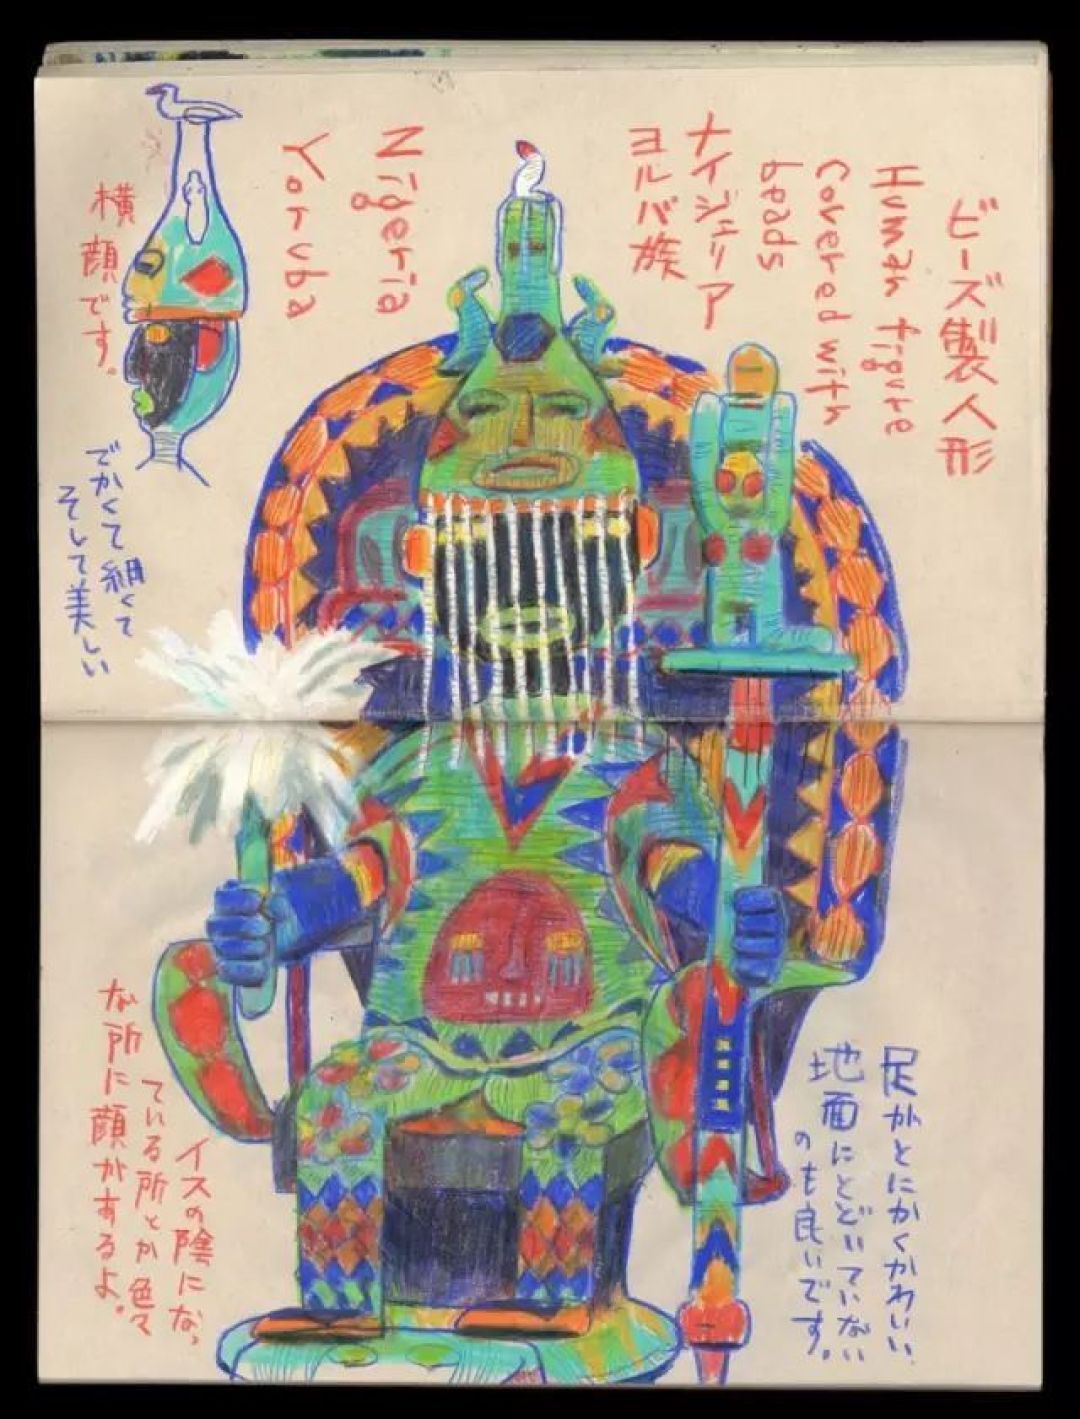 ビーズ製人形
Human figure
Covered with
beads
ナイジェリア
ヨルバ族
Nigeria
Yoruba
横顔です。
でかくて細くて
そして美しい
足がとにかくかわいい、
地面にとどいていない
のも良いです。
イスの陰になっ
ている所とか色々
な所に顔があるよ。